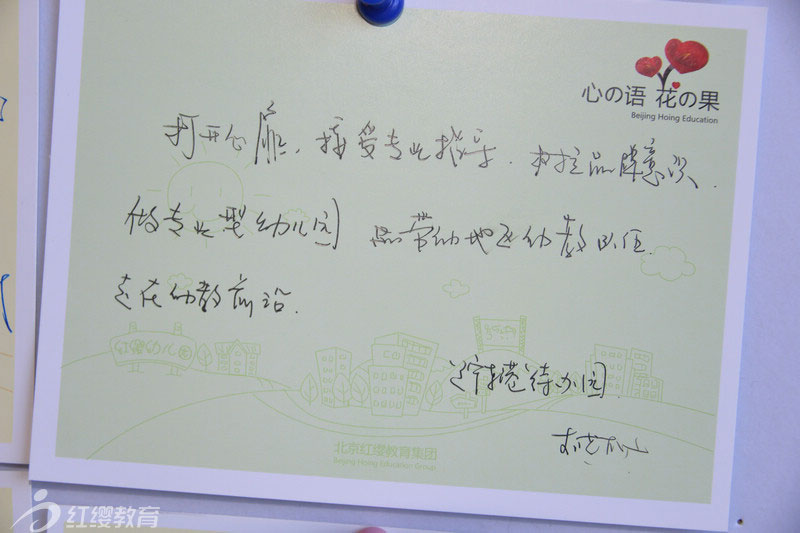 心の语 花の果
Beijing Hoing Education
打开心扉，接受专业指导，树立品牌意识
做专业型幼儿园 带动地区幼教队伍
走在幼教前沿.
红缨幼儿园
待办园
北京红缨教育集团
Beijing Hoing Education Group
红缨教育